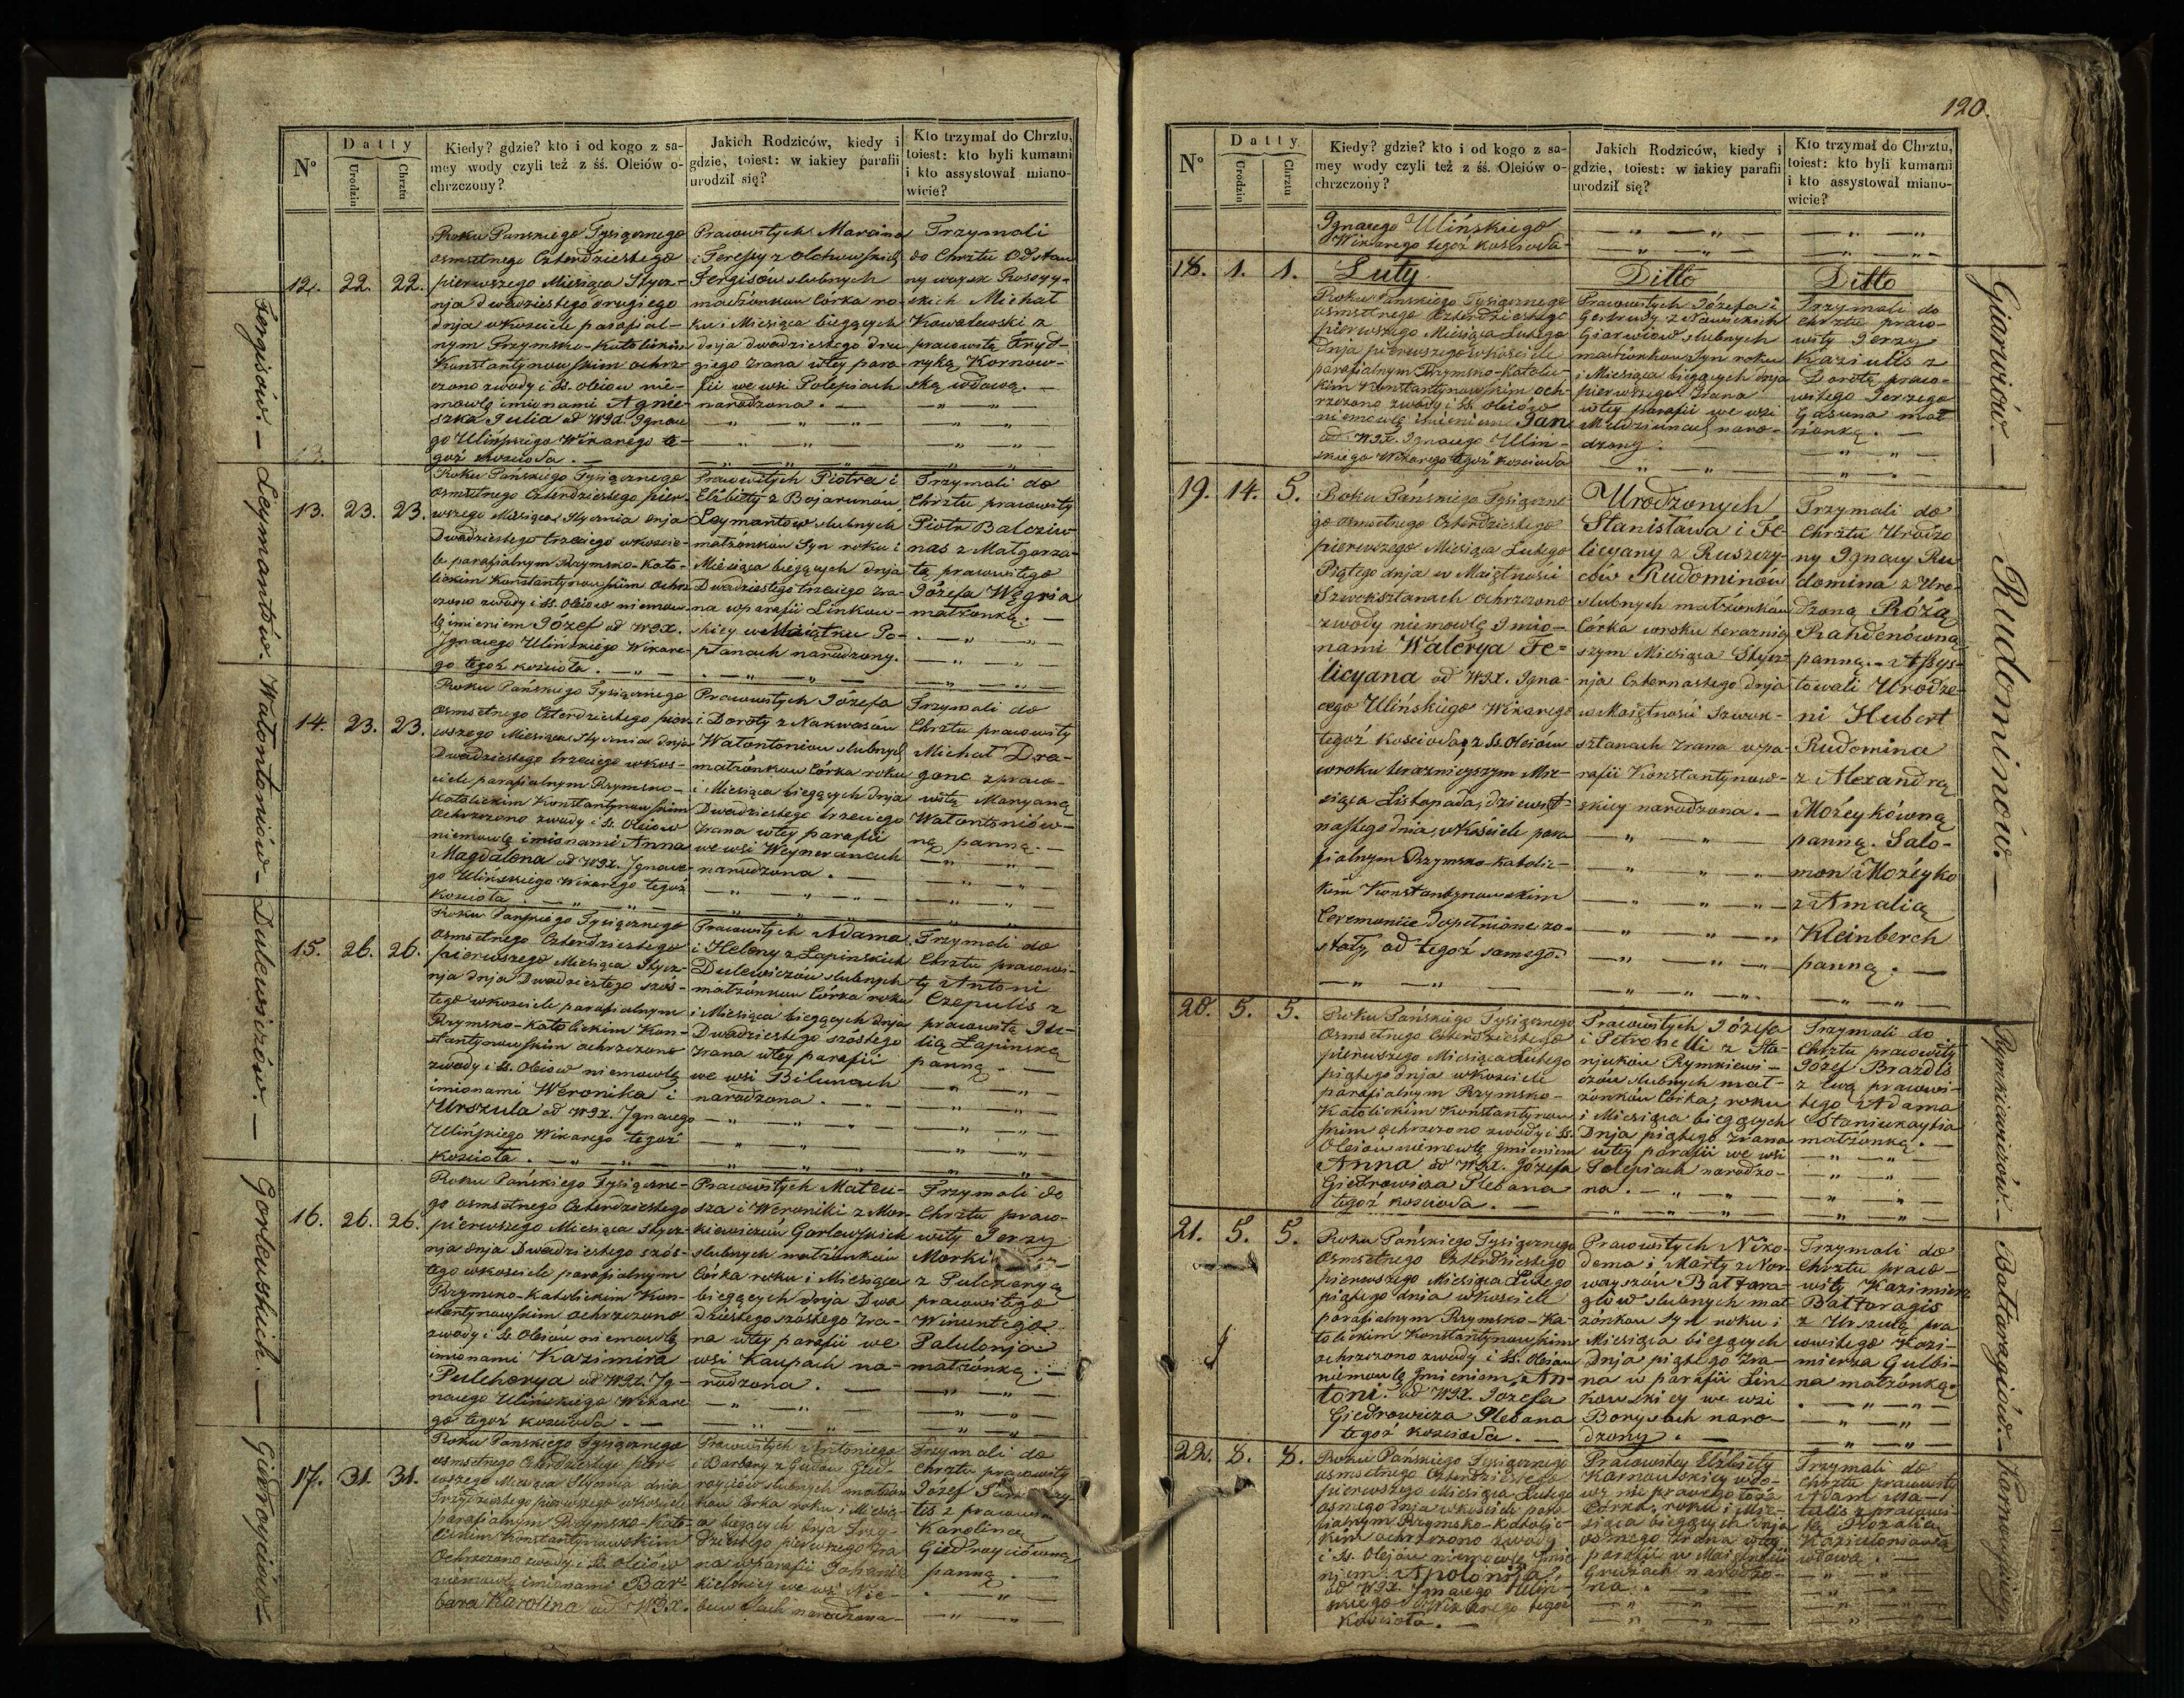 N°
Datty
Urodzin
Chrztu
Kiedy? gdzie? kto i od kogo z sa-
mey wody czyli też z śś. Oleiów o-
chrzczony?
Jakich Rodziców, kiedy i
gdzie, toiest: w iakiey parafii
urodził się?
Kto trzymał do Chrztu,
toiest: kto byli kumami
i kto assystował miano-
wicie?
Fergisów. — Leymantów. Watontoniów — Dulewiczów. — Gorlewskich. — Giedroyciów —
12. 22. 22.
Roku Panskiego Tysiącznego
osmsetnego Czterdziestego
pierwszego Miesiąca Stycz-
nja dwadziestego drugiego
dnja w Kosciele parafial-
nym Rzymsko-Katolickim
Konstantynowskim ochrz-
czono zwody i śś. oleiow nie-
mowlę imionami Agnie-
szka Julia od WJX. Ignace
go Ulińskiego Wikarego te-
goż Koscioła. —
Pracowitych Marcina
i Teressy z Olchowskich
Fergisów slubnych
małżonkow Córka ro-
ku i Miesiąca bieżących
dnja dwadziestego dru
giego zrana w tey para-
fii we wsi Polepiach
narodzona. —
Trzymali
do Chrztu Odstaw
ny woysk Rossyy-
skich Michał
Kowalewski z
pracowitą Fryd-
ryką Kornow-
ską wdową. —
13. 23. 23.
Roku Pańskiego Tysiącznego
Osmsetnego Czterdziestego pier-
wszego Miesiąca Stycznia dnja
Dwadziestego trzeciego w koscie-
le parafialnym Rzymsko-Kato-
lickim Konstantynowskim Ochrz
czono zwody i śś. Oleiow niemow-
lę imieniem Józef od WJX.
Ignacego Ulińskiego Wikare-
go tegoż kościoła. —
Pracowitych Piotra i
Elżbiety z Bojarunów
Leymantow slubnych
małżonków Syn roku i
Miesiąca bieżących dnja
Dwadziestego trzeciego zra-
na w parafii Linkow-
skiey w Maiątku Po-
planach narodzony.
Trzymali do
Chrztu pracowity
Piotr Balcziw
nas z Małgorza-
tą pracowitego
Józefa Węgria
małżonką. —
14. 23. 23.
Roku Pańskiego Tysiącznego
Osmsetnego Czterdziestego pier
wszego Miesiąca Stycznia dnja
Dwadziestego trzeciego w kos-
ciele parafialnym Rzymsko-
Katolickim Konstantynowskim
Ochrzczono zwody i śś. Oleiow
niemowlę imionami Anna
Magdalena od WJX. Ignace-
go Ulińskiego Wikarego tegoż
Kościoła. —
Pracowitych Józefa
i Doroty z Nakwasów
Watontoniow slubnych
małżonkow Córka roku
i Miesiąca bieżących dnja
Dwadziestego trzeciego
zrana w tey parafii
we wsi Weynerancach
narodzona. —
Trzymali do
Chrztu pracowity
Michał Dra-
gonc z praco-
witą Maryaną
Watontoniów-
ną panną. —
15. 26. 26.
Roku Pańskiego Tysiącznego
Osmsetnego Czterdziestego
pierwszego Miesiąca Stycz-
nja dnja Dwadziestego szós-
tego w kosciele parafialnym
Rzymsko-Katolickim Kon-
stantynowskim ochrzczono
zwody i śś. Oleiow niemowlę
imionami Weronika i
Urszula od WJX. Ignacego
Ulińskiego Wikarego tegoż
Kościoła. —
Pracowitych Adama
i Heleny z Łapinskich
Dulewiczów slubnych
małżonkow Córka roku
i Miesiąca bieżących dnja
Dwadziestego szóstego
zrana w tey parafii
we wsi Bilunach
narodzona. —
Trzymali do
Chrztu pracowi-
ty Antoni
Czepulis z
pracowitą Ju-
lią Łapinską
panną. —
16. 26. 26.
Roku Pańskiego Tysiączne-
go osmsetnego Czterdziestego
pierwszego Miesiąca Stycz-
nja dnja Dwadziestego szós-
tego w kosciele parafialnym
Rzymsko-Katolickim Kon-
stantynowskim ochrzczono
zwody i śś Oleiów niemowlę
imionami Kazimira
Pulcherya od WJX. Ig-
nacego Ulińskiego Wikare
go tegoż kościoła. —
Pracowitych Mateu-
sza i Weroniki z Mor-
kiewiczów Gorlewskich
slubnych małżonków
Córka roku i Miesiąca
bieżących dnja Dwa
dziestego szóstego zra-
na w tey parafii we
wsi Kaupach na-
rodzona. —
Trzymali do
Chrztu praco-
wity Jerzy
z Pulcheryą
pracowitego
Wincentego
Palulonja
małżonką. —
17. 31. 31.
Roku Panskiego Tysiącznego
osmsetnego Czterdziestego pier
wszego Miesiąca Stycznia dnia
Trzydziestego pierwszego w kosciele
parafialnym Rzymsko-Kato-
lickim Konstantynowskim
Ochrzczono zwody i śś. oleiów
niemowlę imionami Bar-
bara Karolina od WJX.
Pracowitych Antoniego
i Barbary z Gudów Gied-
royciów slubnych małżon
ków Córka roku i Miesią-
ca bieżących dnja Trzy-
dziestego pierwszego zra
na w parafii Johanisz
kielskiey we wsi Nie-
narodzona —
Trzymali do
Chrztu pracowity
Jozef
tis z pracowitą
Karoliną
Giedroyciówną
panną. —
120.
N°
Datty
Urodzin
Chrztu
Kiedy? gdzie? kto i od kogo z sa-
mey wody czyli też z śś. Oleiów o-
chrzczony?
Jakich Rodziców, kiedy i
gdzie, toiest: w iakiey parafii
urodził się?
Kto trzymał do Chrztu,
toiest: kto byli kumami
i kto assystował miano-
wicie?
Giarwiów. — Rudominów. — Rymkiewiczów — Battaragiów. — Kornowskiey
Ignacego Ulińskiego
Wikarego tegoż kosciola —
18. 1. 1.
Luty
Ditto
Ditto
Roku Pańskiego Tysiącznego
osmsetnego Czterdziestego
pierwszego Miesiąca Lutego
dnja pierwszego w kosciele
parafialnym Rzymsko-Katolic-
kim Konstantynowskim och-
rzczono zwody i śś. oleiów
niemowlę imieniem Jan
od WJX. Ignacego Uliń-
skiego Wikarego tegoż kosciola
Pracowitych Józefa i
Gertrudy z Nowickich
Giarwiow slubnych
małżonkow Syn roku
i Miesiąca bieżących dnja
pierwszego zrana
w tey parafii we wsi
Meldziunach naro-
dzony.
Trzymali do
Chrztu praco-
wity Jerzy
Kaziulis z
Dorotą praco-
witego Jerzego
Gasuna mał
żonką. —
19. 14. 5.
Roku Pańskiego Tysiączne
go osmsetnego Czterdziestego
pierwszego Miesiąca Lutego
Piątego dnja w Maiętności
Szwoksztanach ochrzczono
zwody niemowlę Imio-
nami Walerya Fe-
licyana od WJX. Igna-
cego Ulińskiego Wikarego
tegoż Kosciola, z śś. Oleiów
w roku teraznieyszym Mie-
siąca Listopada, dziewięt-
nastego dnia, w Kościele para
fialnym Rzymsko-Katolic-
kim Konstantynowskim
Ceremonije dopełnione zo-
stały, od tegoż samego.
Urodzonych
Stanisława i Fe-
licyany z Ruszczy-
ców Rudominów
slubnych małżonków
Córka w roku teraznie
szym Miesiąca Stycz-
nja Czternastego dnja
w Maiętności Szwok-
sztanach zrana w pa-
rafii Konstantynow-
skiey narodzona. —
Trzymali do
Chrztu Urodzo
ny Ignacy Ru
domina z Uro-
dzoną Różą
Rahdenówną
panną. — Assys-
towali Urodze-
ni Hubert
Rudomina
z Alexandrą
Możeykówną
panną. Salo-
mon Możeyko
z Amalią
Kleinberch
panną. —
20. 5. 5.
Roku Pańskiego Tysiącznego
Osmsetnego Czterdziestego
pierwszego Miesiąca Lutego
piątego dnja w Kosciele
parafialnym Rzymsko-
Katolickim Konstantynow
skim ochrzczono zwody i śś.
Oleiów niemowlę Imieniem
Anna od WJX. Józefa
Giedrowicza Plebana
tegoż kosciola. —
Pracowitych Józefa
i Petronelli z Sta-
njuków Rymkiewi-
czów slubnych mał-
żonków Córka, roku
i Miesiąca bieżących
Dnja piątego zrana
w tey parafii we wsi
Polepiach narodzo-
na. —
Trzymali do
Chrztu pracowity
Józef Brazdis
z Ewą pracowi-
tego Adama
Staniukaytia
małżonką. —
21. 5. 5.
Roku Pańskiego Tysiącznego
Osmsetnego Czterdziestego
pierwszego Miesiąca Lutego
piątego dnia w kosciele
parafialnym Rzymsko-Ka-
tolickim Konstantynowskim
ochrzczono zwody i śś. Oleiow
niemowlę Imieniem An-
toni. od WJX. Jozefa
Giedrowicza Plebana
tegoż kosciola. —
Pracowitych Niko-
dema i Marty z Nor-
wayszów Battara-
giów slubnych mał
żonkow Syn roku i
Miesiąca bieżących
Dnja piątego zra-
na w parafii Lin
kowskiey we wsi
Borysach naro-
dzony. —
Trzymali do
Chrztu praco-
wity Kazimierz
Battaragis
z Urszulą pra
cowitego Kazi-
mierza Gulbi-
na małżonką.
22. 8. 8.
Roku Pańskiego Tysiącznego
osmsetnego Czterdziestego
pierwszego Miesiąca Lutego
osmego dnja w kosciele para
fialnym Rzymsko-Katolic-
kim ochrzczono zwody
i śś. Olejów niemowlę Imie
niem Apolonija,
od WJX. Ignacego Ulin-
skiego Wikarego tegoż
Kościoła. —
Pracowitey Elżbiety
Kornowskiey wdo-
wy nie prawego łoża
Córka, roku i Mie-
siąca bieżących dnja
osmego zrana w tey
parafii w Maiętności
Grużach narodzo-
na. —
Trzymali do
Chrztu pracowity
Adam Ma-
tulis z pracowi-
tą Rozalią
wdową. —